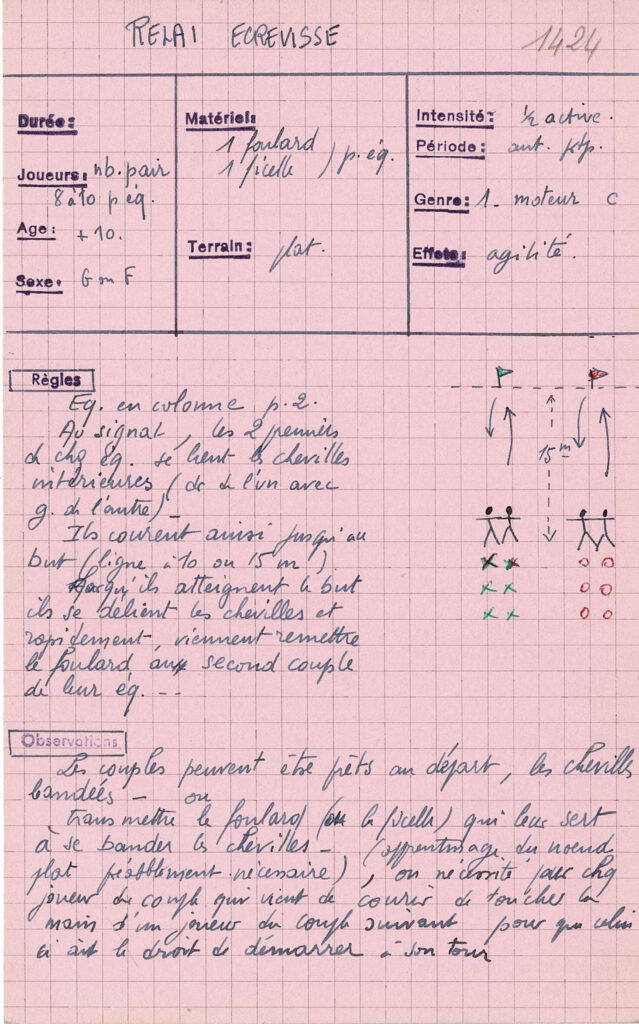 RELAI ECREVISSE
1424
Durée:
Joueurs: nb. pair
8 à 10 p éq.
Age: + 10.
Sexe: G ou F
Matériel:
1 foulard
1 ficelle ) p. éq.
Terrain: plat.
Intensité: ½ active.
Période: aut. ptp.
Genre: 1- moteur C
Effets: agilité.
Règles
Eq. en colonne p. 2.
Au signal, les 2 premiers
d chq éq. se lient les chevilles
intérieures (dr de l'un avec
g. de l'autre)_
Ils courent ainsi jusqu'au
but (ligne à 10 ou 15 m!).
Lorsqu'ils atteignent le but
ils se délient les chevilles et
rapidement, viennent remettre
le foulard au second couple
de leur éq. ---
15 m
Observations
Les couples peuvent être prêts au départ, les chevilles
bandées - ou
transmettre le foulard (ou la ficelle) qui leur sert
à se bander les chevilles - (apprentissage du noeud
plat préalablement nécessaire), ou nécessité pour chq
joueur du couple qui vient de courir de toucher la
main d'un joueur du couple suivant pour que celui
ci ait le droit de démarrer à son tour